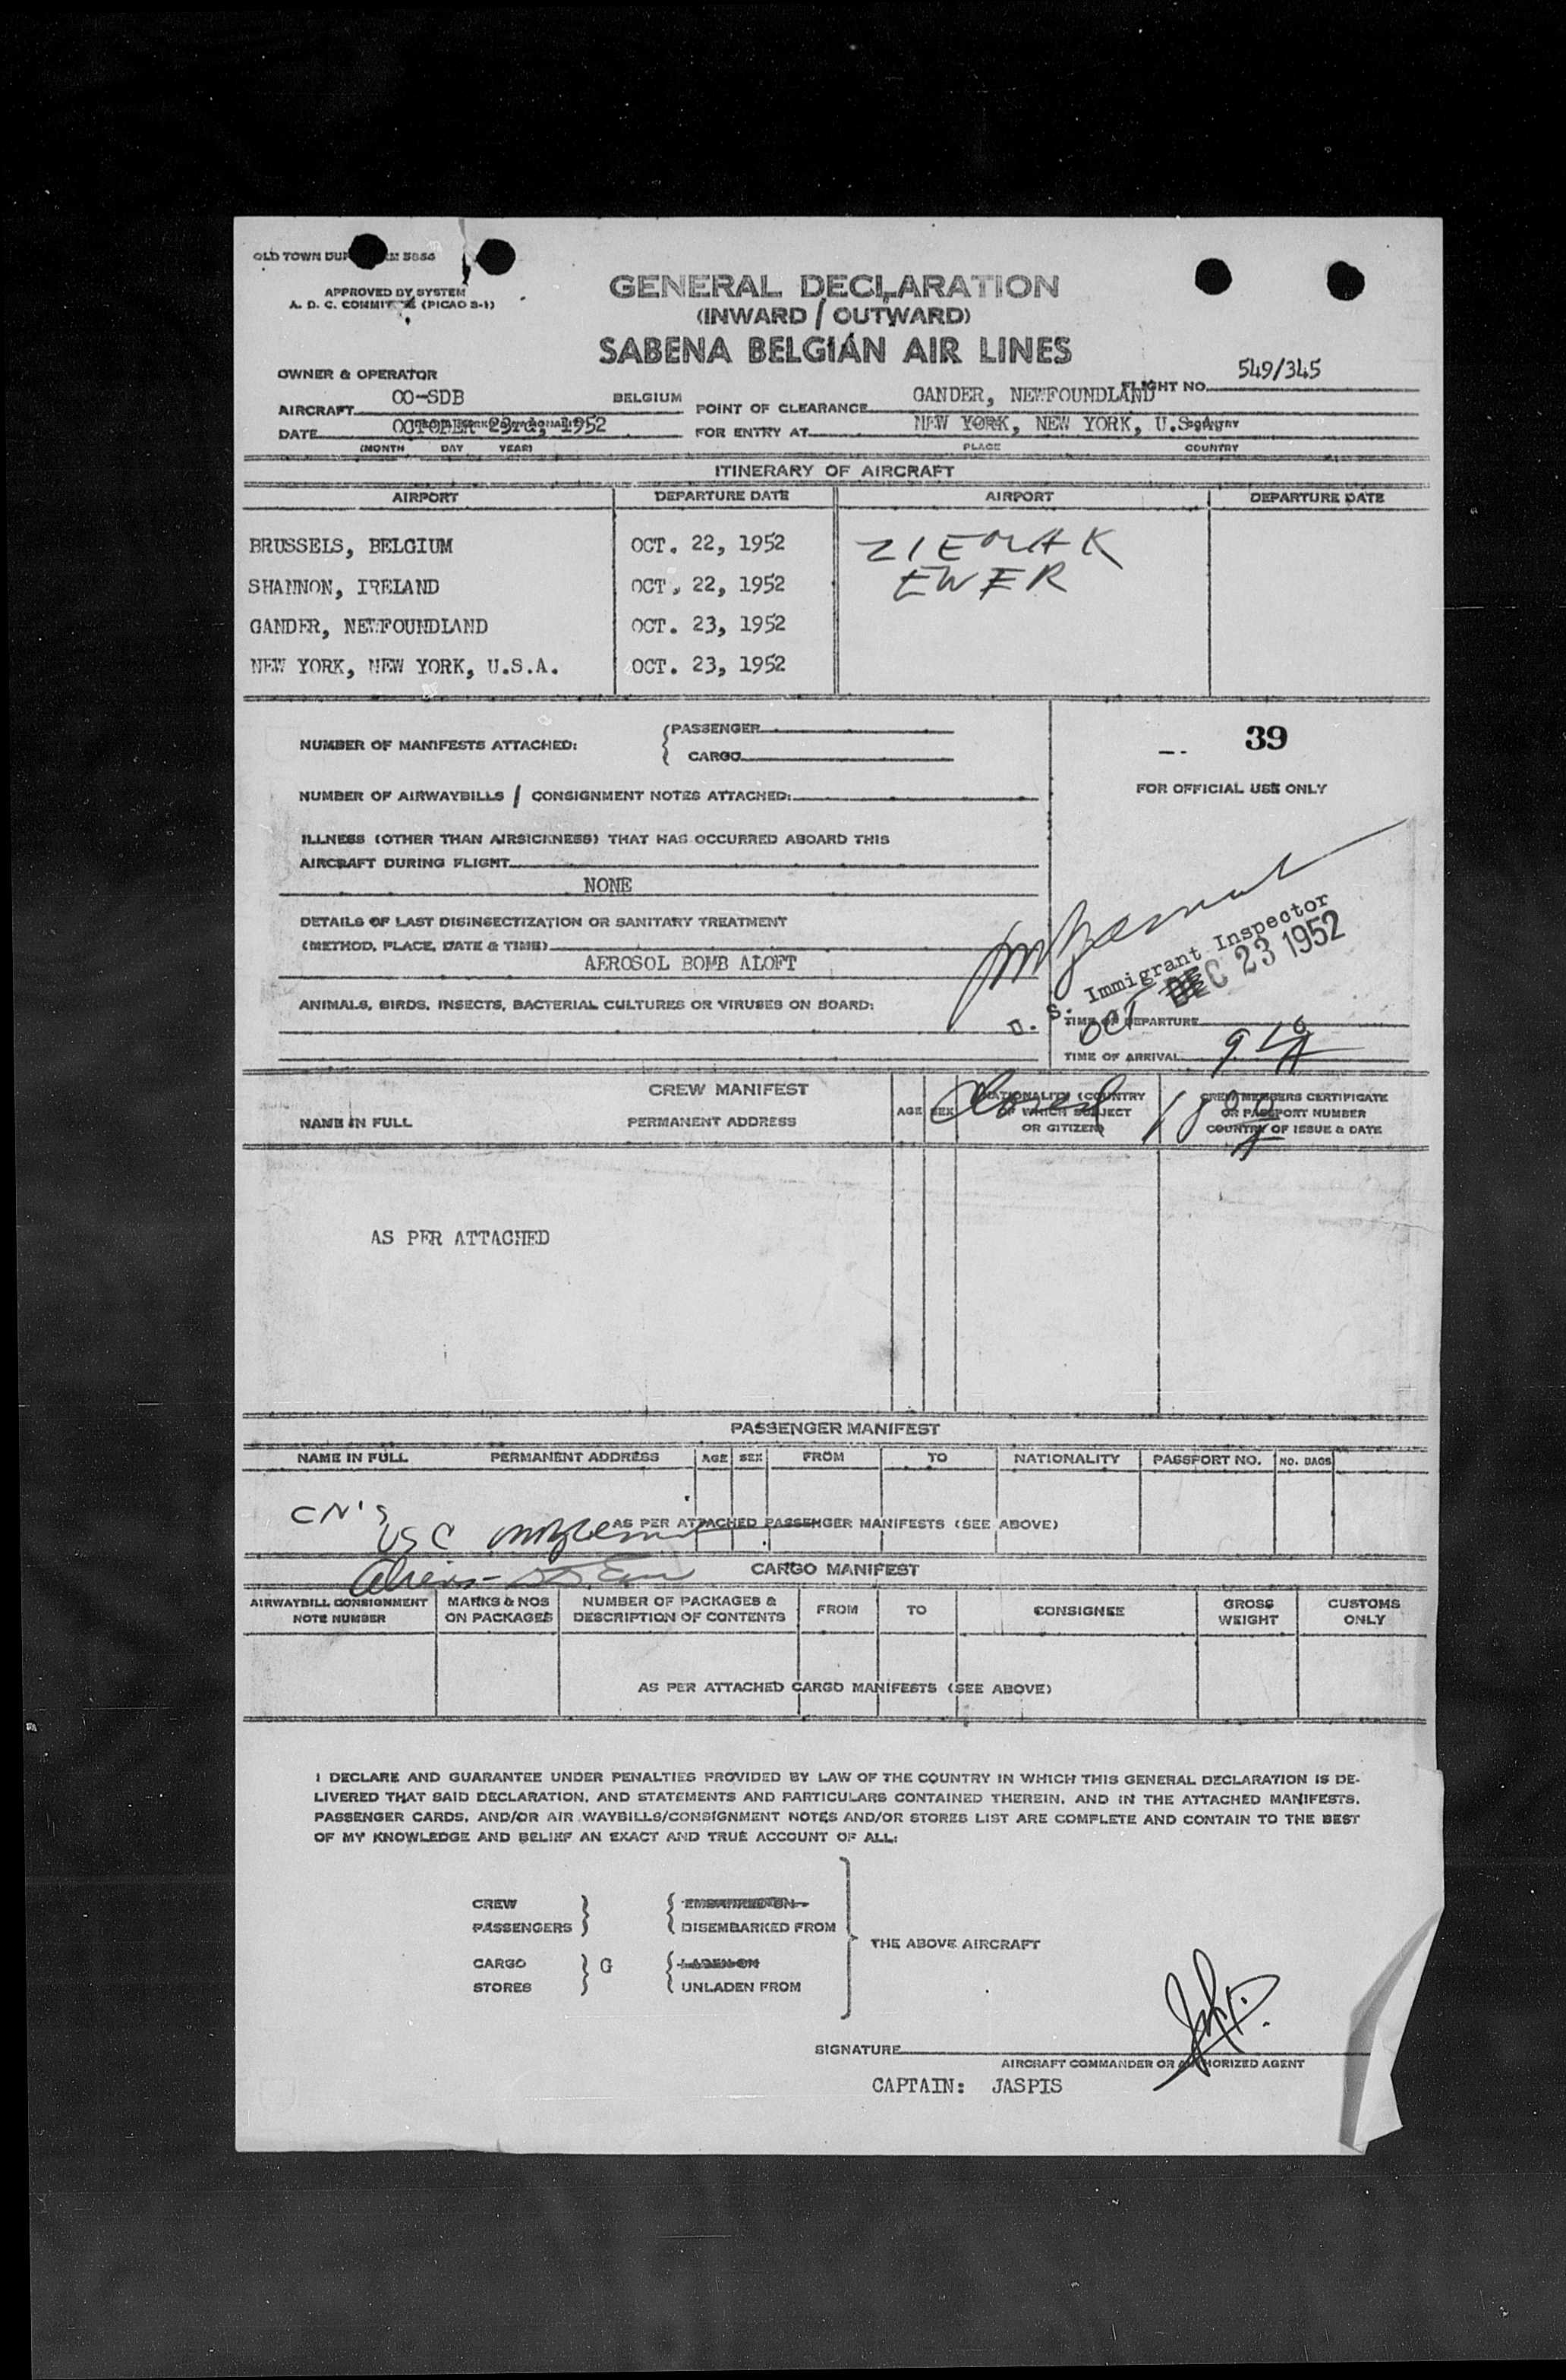 OLD TOWN DUP FORM 5854
APPROVED BY SYSTEM
A. D. C. COMMITTEE (PICAO 2-1)
GENERAL DECLARATION
(INWARD / OUTWARD)
SABENA BELGIAN AIR LINES
OWNER & OPERATOR
FLIGHT NO. 549/345
AIRCRAFT OO-SDB BELGIUM
POINT OF CLEARANCE GANDER, NEWFOUNDLAND
DATE OCTOBER 23rd, 1952
FOR ENTRY AT NEW YORK, NEW YORK, U.S.A.
(MONTH DAY YEAR)
PLACE COUNTRY
ITINERARY OF AIRCRAFT
AIRPORT DEPARTURE DATE AIRPORT DEPARTURE DATE
BRUSSELS, BELGIUM OCT. 22, 1952 ZIEMAK
SHANNON, IRELAND OCT. 22, 1952 EWER
GANDER, NEWFOUNDLAND OCT. 23, 1952
NEW YORK, NEW YORK, U.S.A. OCT. 23, 1952
NUMBER OF MANIFESTS ATTACHED:
PASSENGER
CARGO
39
NUMBER OF AIRWAYBILLS / CONSIGNMENT NOTES ATTACHED:
FOR OFFICIAL USE ONLY
ILLNESS (OTHER THAN AIRSICKNESS) THAT HAS OCCURRED ABOARD THIS
AIRCRAFT DURING FLIGHT
NONE
DETAILS OF LAST DISINSECTIZATION OR SANITARY TREATMENT
(METHOD, PLACE, DATE & TIME)
AEROSOL BOMB ALOFT
ANIMALS, BIRDS, INSECTS, BACTERIAL CULTURES OR VIRUSES ON BOARD:
U. S. Immigrant Inspector
OCT DEC 23 1952
TIME OF DEPARTURE
TIME OF ARRIVAL
CREW MANIFEST
NAME IN FULL PERMANENT ADDRESS AGE SEX
NATIONALITY (COUNTRY
OF WHICH SUBJECT
OR CITIZEN)
CREW MEMBERS CERTIFICATE
OR PASSPORT NUMBER
COUNTRY OF ISSUE & DATE
AS PER ATTACHED
PASSENGER MANIFEST
NAME IN FULL PERMANENT ADDRESS AGE SEX FROM TO NATIONALITY PASSPORT NO. NO. BAGS
CN'S
USC
AS PER ATTACHED PASSENGER MANIFESTS (SEE ABOVE)
Aliens-
CARGO MANIFEST
AIRWAYBILL CONSIGNMENT
NOTE NUMBER
MARKS & NOS
ON PACKAGES
NUMBER OF PACKAGES &
DESCRIPTION OF CONTENTS
FROM TO CONSIGNEE
GROSS
WEIGHT
CUSTOMS
ONLY
AS PER ATTACHED CARGO MANIFESTS (SEE ABOVE)
I DECLARE AND GUARANTEE UNDER PENALTIES PROVIDED BY LAW OF THE COUNTRY IN WHICH THIS GENERAL DECLARATION IS DE-
LIVERED THAT SAID DECLARATION, AND STATEMENTS AND PARTICULARS CONTAINED THEREIN, AND IN THE ATTACHED MANIFESTS,
PASSENGER CARDS, AND/OR AIR WAYBILLS/CONSIGNMENT NOTES AND/OR STORES LIST ARE COMPLETE AND CONTAIN TO THE BEST
OF MY KNOWLEDGE AND BELIEF AN EXACT AND TRUE ACCOUNT OF ALL:
CREW EMBARKED ON
PASSENGERS DISEMBARKED FROM
THE ABOVE AIRCRAFT
CARGO G LADEN ON
STORES UNLADEN FROM
SIGNATURE
AIRCRAFT COMMANDER OR AUTHORIZED AGENT
CAPTAIN: JASPIS